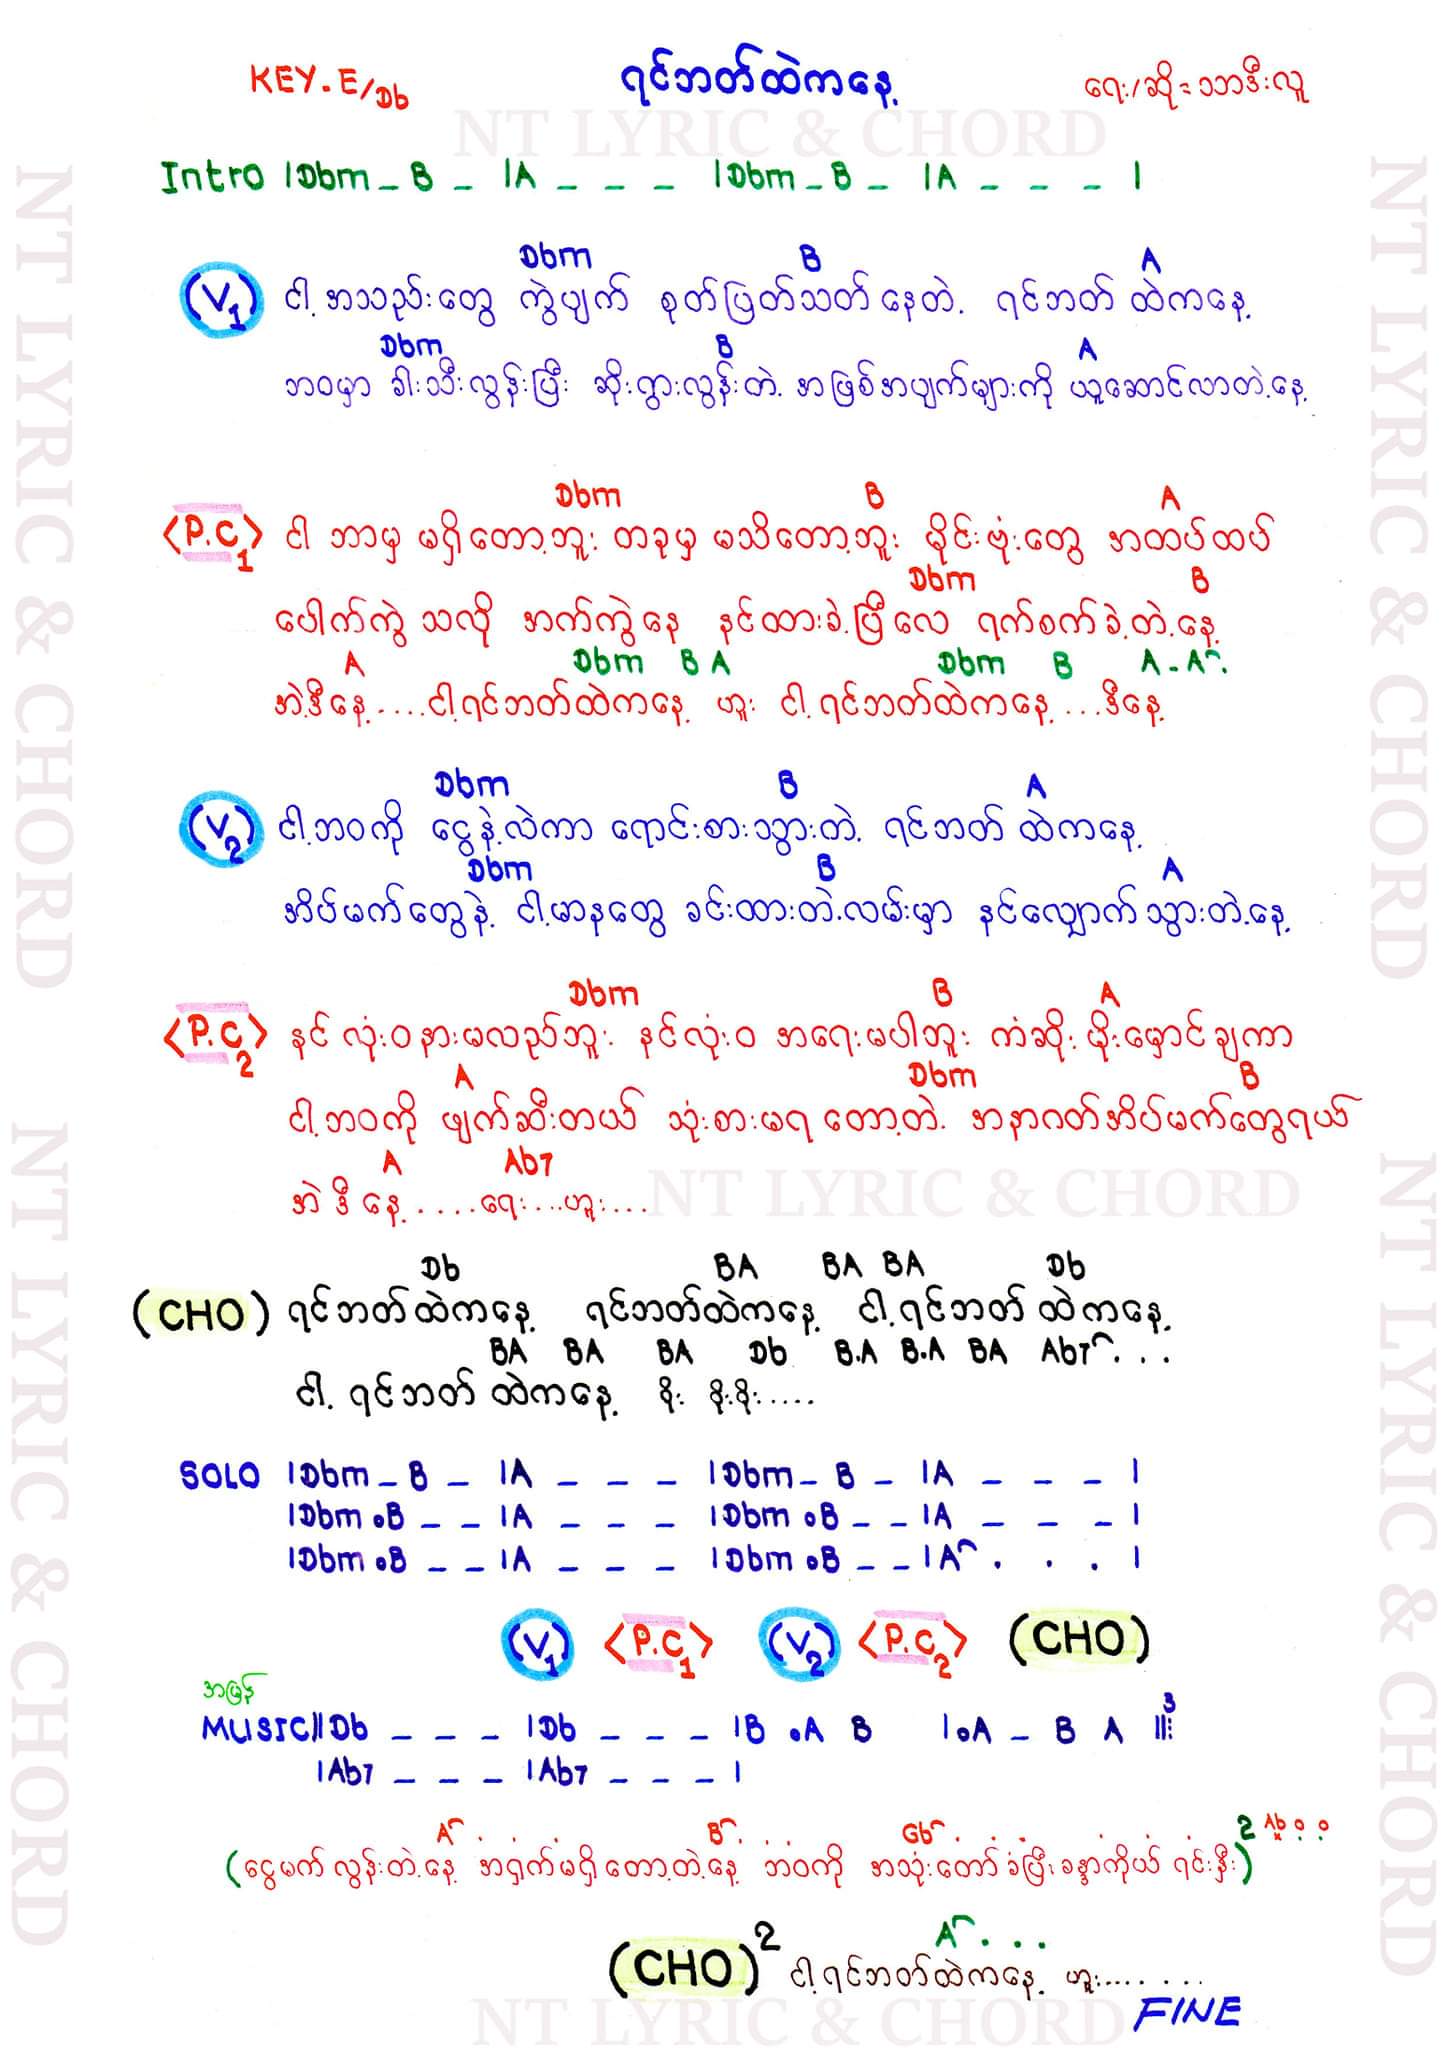 KEY. E/Db
ရင်ဘတ်ထဲကနေ့
ရေး/ဆို = သာဒီးလူ
NT LYRIC & CHORD
Intro |Dbm _ B _ |A _ _ _ |Dbm _ B _ |A _ _ _ |
Dbm B A
(V1) ငါ့ အသည်းတွေ ကွဲပျက် စုတ်ပြတ်သတ်နေတဲ့ ရင်ဘတ် ထဲကနေ့
Dbm B A
ဘဝမှာ ခါးသီးလွန်းပြီး ဆိုးရွားလွန်းတဲ့ အဖြစ်အပျက်များကို ယူဆောင်လာတဲ့နေ့
Dbm B A
<P.C1> ငါ ဘာမှ မရှိတော့ဘူး တခုမှ မသိတော့ဘူး မိုင်းဗုံးတွေ အထပ်ထပ်
Dbm B
ပေါက်ကွဲ သလို အက်ကွဲနေ နင်ထားခဲ့ပြီလေ ရက်စက်ခဲ့တဲ့နေ့
A Dbm B A Dbm B A - A⌒.
အဲ့ဒီနေ့....ငါ့ရင်ဘတ်ထဲကနေ့ ဟူး ငါ့ရင်ဘတ်ထဲကနေ့...ဒီနေ့
Dbm B A
(V2) ငါ့ဘဝကို ငွေနဲ့လဲကာ ရောင်းစားသွားတဲ့ ရင်ဘတ် ထဲကနေ့
Dbm B A
အိပ်မက်တွေနဲ့ ငါ့မာနတွေ ခင်းထားတဲ့လမ်းမှာ နင်လျှောက်သွားတဲ့နေ့
Dbm B A
<P.C2> နင်လုံးဝနားမလည်ဘူး နင်လုံးဝ အရေးမပါဘူး ကံဆိုးမိုးမှောင်ချကာ
A Dbm B
ငါ့ဘဝကို ဖျက်ဆီးတယ် သုံးစားမရတော့တဲ့ အနာဂတ်အိပ်မက်တွေရယ်
A Ab7
အဲဒီနေ့....ရေး...ဟူး...
NT LYRIC & CHORD
Db BA BA BA Db
(CHO) ရင်ဘတ်ထဲကနေ့ ရင်ဘတ်ထဲကနေ့ ငါ့ရင်ဘတ် ထဲကနေ့
BA BA BA Db B.A B.A BA Ab7⌒...
ငါ့ ရင်ဘတ် ထဲကနေ့
SOLO |Dbm _ B _ |A _ _ _ |Dbm _ B _ |A _ _ _ |
|Dbm .B _ _ |A _ _ _ |Dbm .B _ _ |A _ _ _ |
|Dbm .B _ _ |A _ _ _ |Dbm .B _ _ |A⌒ . . . |
(V1) <P.C1> (V2) <P.C2> (CHO)
အမြန်
MUSIC ||Db _ _ _ |Db _ _ _ |B .A B |.A _ B A ||:3
|Ab7 _ _ _ |Ab7 _ _ _ |
A⌒ . . . B⌒ . . . Gb⌒ . . . 2 Ab
(ငွေမက်လွန်းတဲ့နေ့ အရှက်မရှိတော့တဲ့နေ့ ဘဝကို အသုံးတော်ခံပြီး ခန္ဓာကိုယ် ရင်းနှီး)
A⌒ . . .
(CHO)2 ငါ့ရင်ဘတ်ထဲကနေ့ ဟူး.......
FINE
NT LYRIC & CHORD
NT LYRIC & CHORD
NT LYRIC & CHORD
NT LYRIC & CHORD
NT LYRIC & CHORD